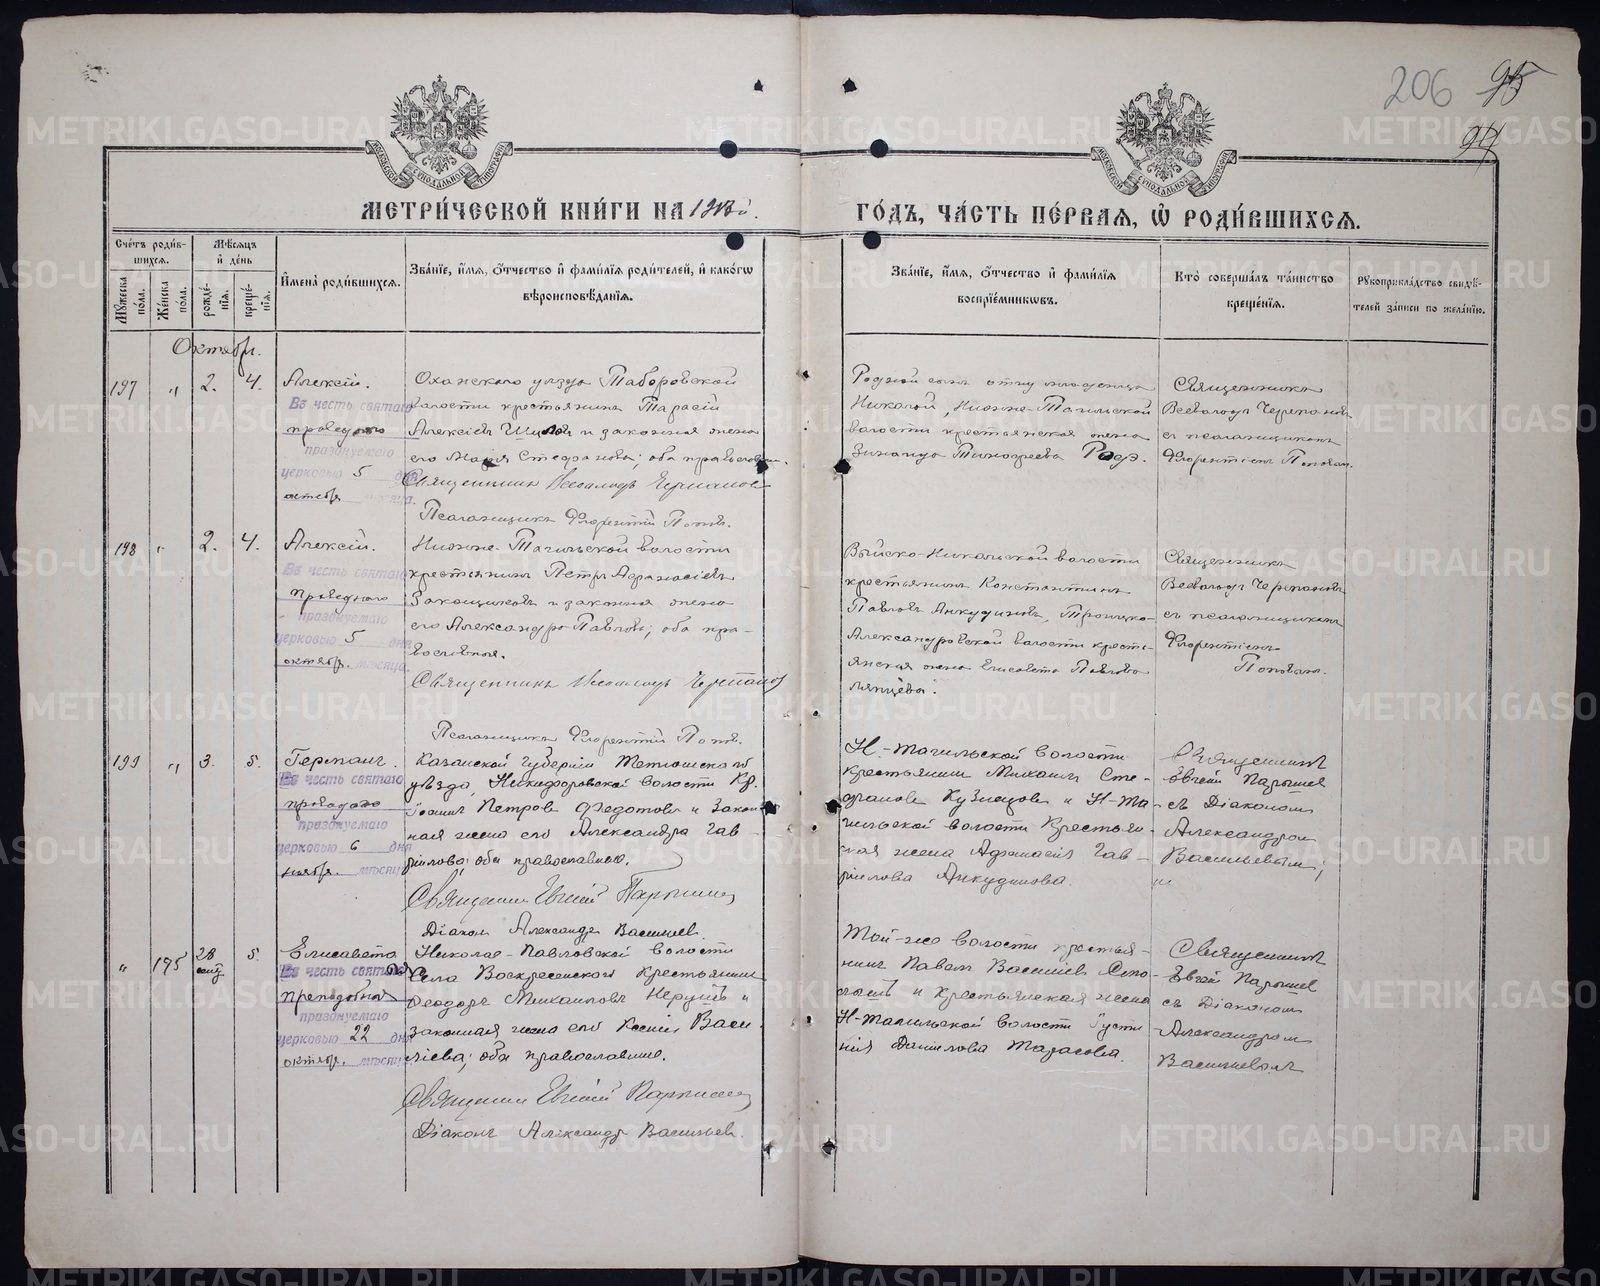 206 95
94
МОСКОВСКОЙ СѴНОДАЛЬНОЙ ТИПОГРАФІИ
МОСКОВСКОЙ СѴНОДАЛЬНОЙ ТИПОГРАФІИ
МЕТРИ́ЧЕСКОЙ КНИ́ГИ НА
ГО́ДЪ, ЧА́СТЬ ПЕ́РВАЯ, Ѡ҆ РОДИ́ВШИХСЯ.
Сче́тъ роди́в-
шихся.
Мѣ́сяцъ
и҆ де́нь
Мꙋ́жеска по́ла.
Же́нска по́ла.
рожде́-
нїя.
креще́-
нїя.
И҆мена̀ роди́вшихся.
Зва́нїе, и҆́мя, ѻ҆́тчество и҆ фами́лїя роди́телей, и҆ како́гѡ
вѣроисповѣ́данїя.
Зва́нїе, и҆́мя, ѻ҆́тчество и҆ фами́лїя
воспрїе́мникѡвъ.
Кто̀ соверша́лъ та́инство
креще́нїя.
Рꙋкоприкла́дство свидѣ́-
телей за́писи по жела́нїю.
Октябрь.
197 " 2. 4. Алексій.
Въ честь святаго
праздуемаго
церковью 5 дня
октября мѣсяца.
Оханскаго уѣзда Таборовской
волости крестьянинъ Тарасій
Алексіевъ и законная жена
его Марія Стефанова; оба православн.
Священникъ Всеволодъ
Псаломщикъ Флорентій Поповъ.
Родной сынъ отцу младенца
Николай, Нижне-Тагильской
волости крестьянская жена
Зинаида Тимофеева
Священникъ
Всеволодъ Черепановъ
съ псаломщикомъ
Флорентіемъ Поповым.
198 " 2. 4. Алексій.
Въ честь святаго
праведнаго
празднуемаго
церковью 5 дня
октябр. мѣсяца.
Нижне-Тагильской волости
крестьянинъ Петръ Афанасіевъ
и законная жена
его Александра Павлова; оба пра-
вославные.
Священникъ Всеволодъ Черепановъ
Псаломщикъ Флорентій Поповъ.
Выйско-Никольской волости
крестьянинъ Константинъ
Павловъ Анкудиновъ, Троицко-
Александровской волости кресть-
янская жена Елисавета Павлова
Священникъ
Всеволодъ Черепановъ
съ псаломщикомъ
Флорентіемъ
Поповымъ.
199 " 3. 5. Германъ.
Въ честь святаго
празднуемаго
церковью 6 дня
ноябр. мѣсяца
Казанской губерніи Тетюшскаго
уѣзда, Никифоровской волости Кр.
Іоаннъ Петровъ Федотовъ и Закон-
ная жена его Александра Гав-
рилова; оба православные.
Священник Евгеній
Діаконъ Александръ Васильев.
Н-Тагильской волости
Крестьянин Михаилъ Сте-
фановъ Кузнецовъ и Н-Та-
гильской волости Крестьян-
ская жена Афанасія Гав-
рилова Анкудинова.
Священникъ
Евгеній
съ Діакономъ
Александром
Васильевым;
" 195 28 сент. 5. Елисавета
Въ честь святой
преподобная
празднуемаго
церковью 22 дня
октябр. мѣсяца
Николае-Павловской волости
Села Воскресенскаго Крестьянин
Феодоръ Михаиловъ и
законная жена его Ксенія Васи-
ліева; оба православные.
Священник Евгеній
Діаконъ Александръ Васильев.
Той-же волости крестья-
нинъ Павелъ Василіевъ
и Крестьянская жена
Н-Тагильской волости Іусти-
нія Данилова Тарасова.
Священникъ
Евгеній
съ Діакономъ
Александромъ
Васильевымъ
METRIKI.GASO-URAL.RU